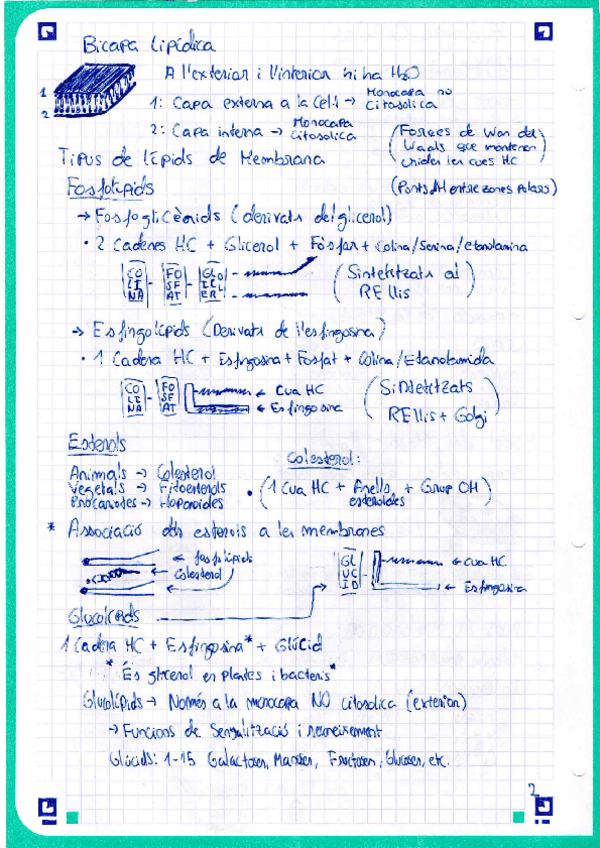 Bicapa Lipídica
A l'exterior i l'interior hi ha H2O
1: Capa externa a la Cel·l → Monocapa no Citosolica
2: Capa interna → Monocapa Citosolica
(Forces de Wan der Waals que mantenen unides les cues HC)
1
2
Tipus de lípids de Membrana
(Ponts d'H entre zones Polars)
Fosfolípids
→ Fosfoglicèrids (derivats del glicerol)
• 2 Cadenes HC + Glicerol + Fosfat + Colina/Serina/etanolamina
COLINA - FOSFAT - GLICEROL
(Sintetitzats al RELlis)
→ Esfingolípids (Derivats de l'esfingosina)
• 1 Cadena HC + Esfingosina + Fosfat + Colina/Etanolamida
COLINA - FOSFAT ← Cua HC
← Esfingosina
(Sintetitzats RELlis + Golgi)
Esterols
Colesterol:
Animals → Colesterol
Vegetals → Fitoesterols
Procariotes → Hopanoides
• (1 Cua HC + Anells esteroides + Grup OH)
* Associació dels esterols a les membranes
← fosfolípids
← Colesterol
GLUCID ← Cua HC
← Esfingosina
Glucolípids
1 Cadena HC + Esfingosina* + Glúcid
*És glicerol en plantes i bacteris*
Glucolípids → Només a la monocapa NO citosolica (exterior)
→ Funcions de Senyalització i reconeixement
Glúcids: 1-15 Galactoses, Manoses, Fructoses, Glucoses, etc.
2